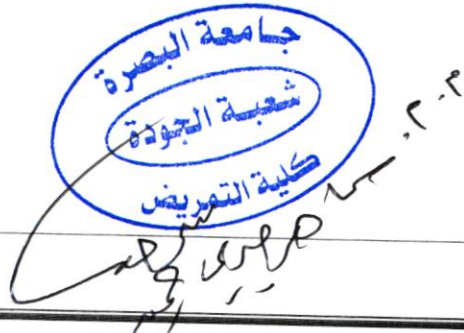 جامعة البصرة
شعبة الجودة
كلية التمريض
م.م.